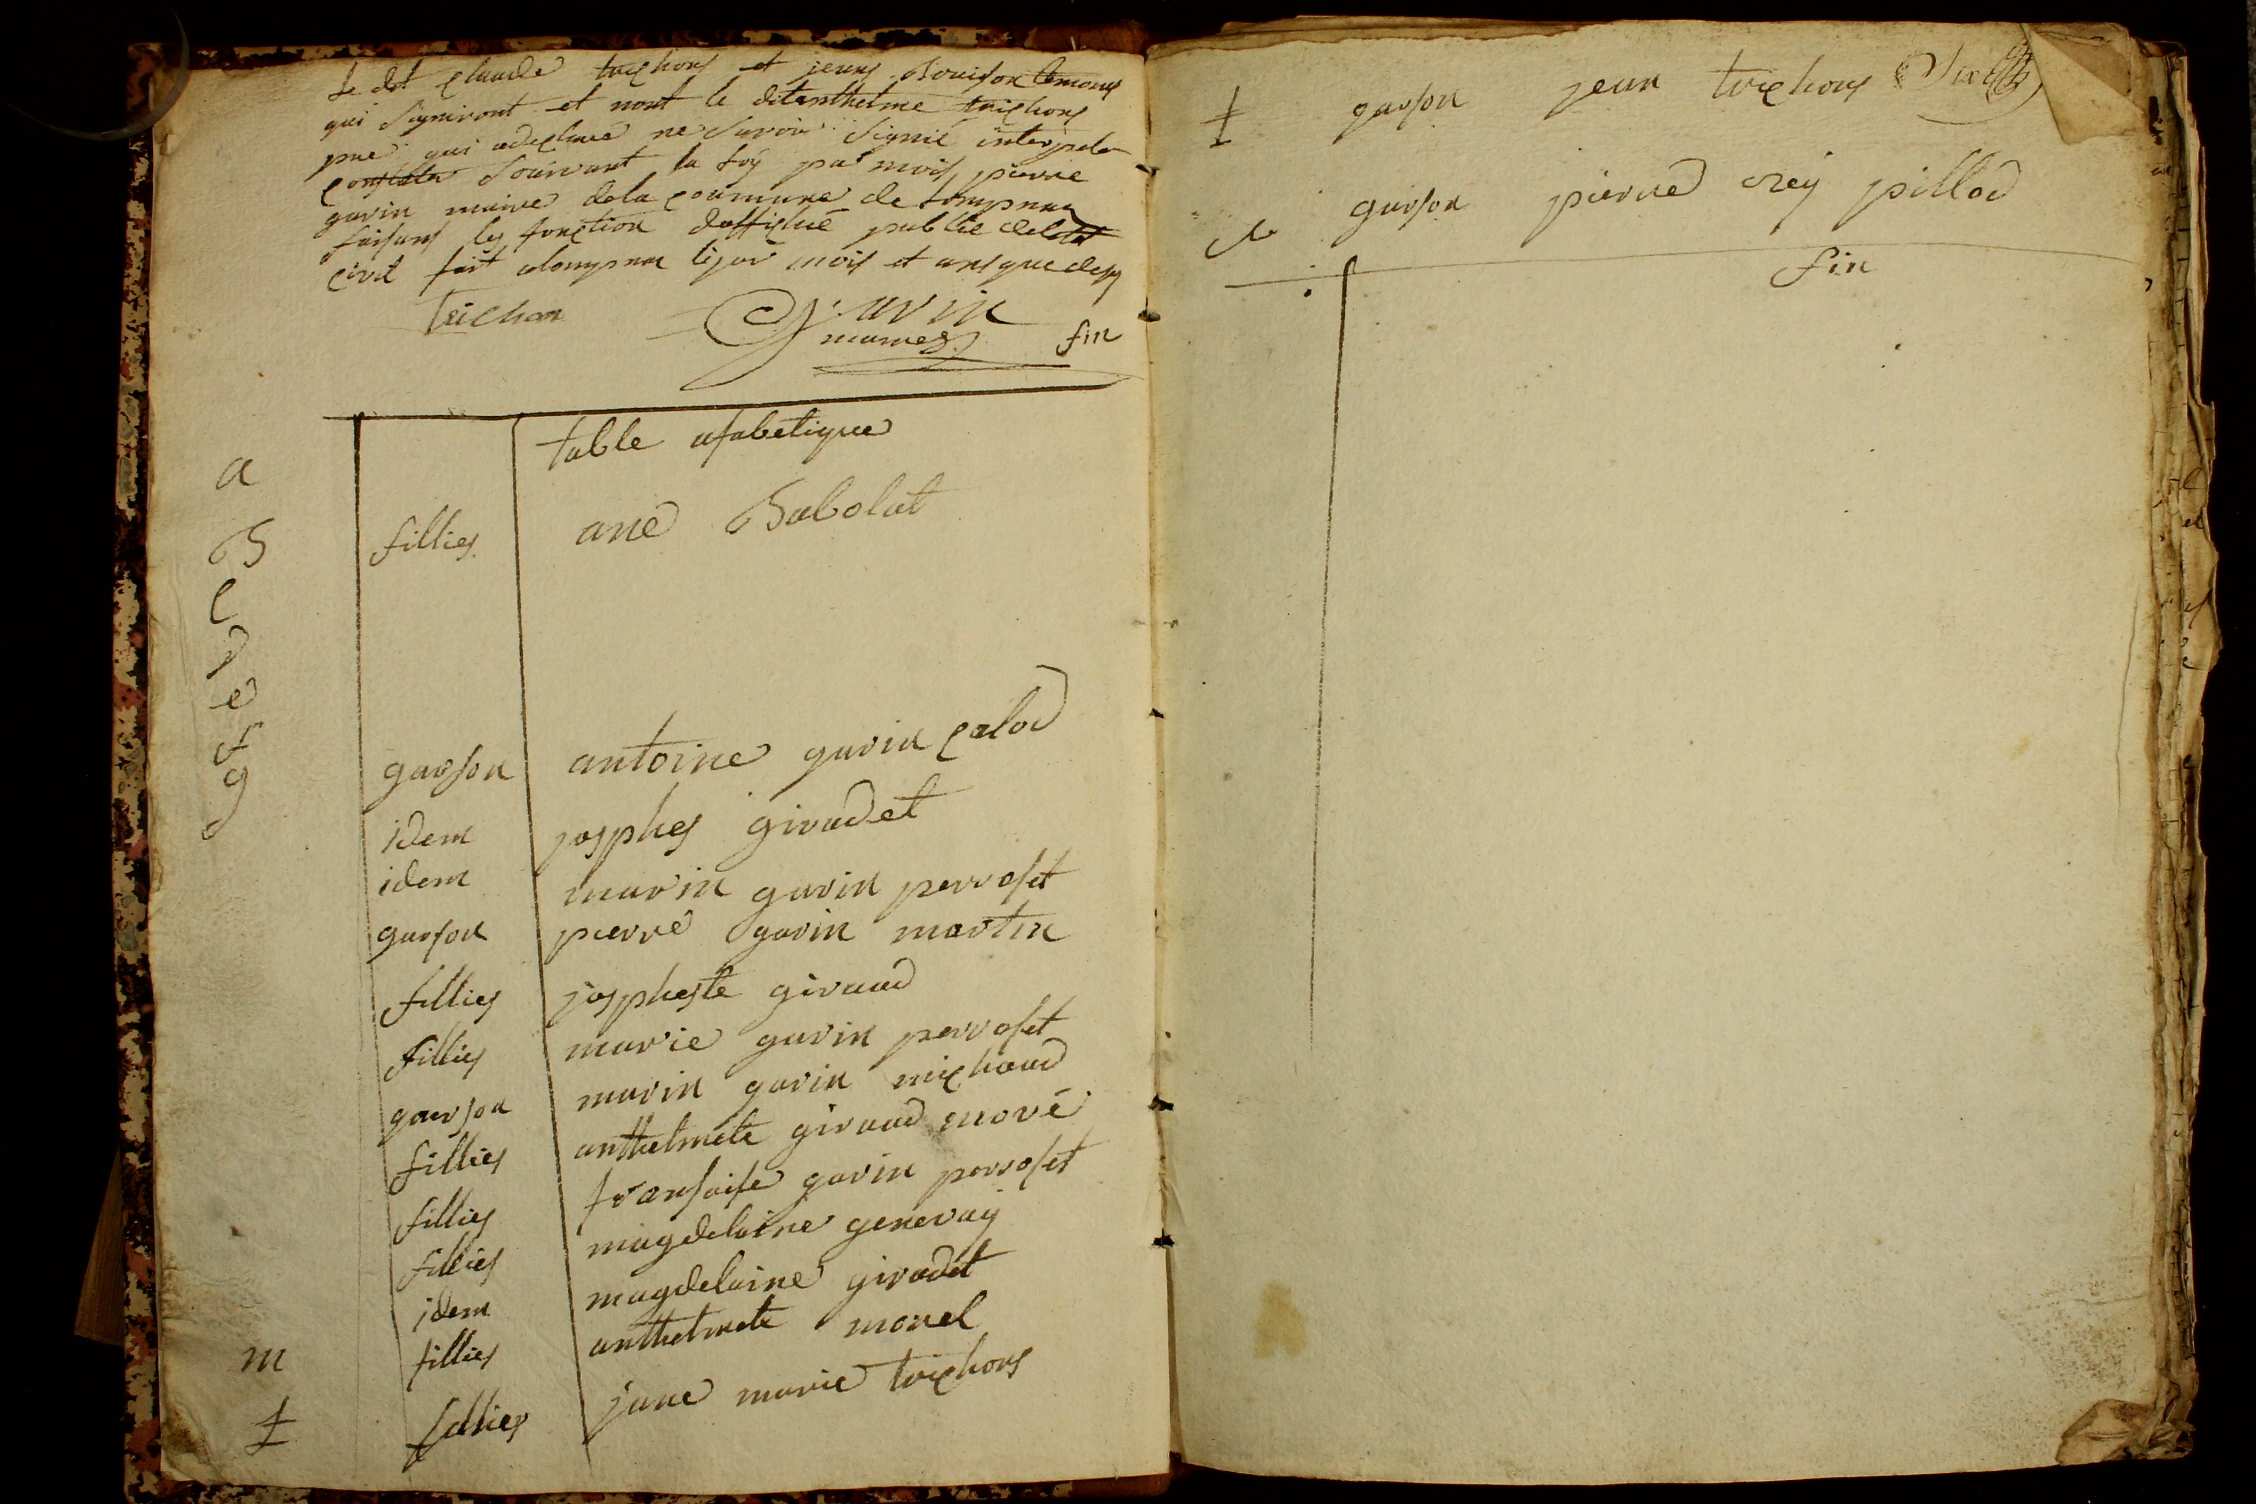 Le dit claude trichons et jeans Bouison temoins
qui signiront et nont le dit anthelme trichons
pne qui adeclaré ne savoir signié interpele
constater souivant la loy par mois pierre
gavin maire dela coumune de lompnas
faisans les fonction dofficié public deletat
civil fait alompnas lejour mois et ans que desus
Trichon
Gavin
maire
fin
table afabetique
a
B fillies ane Babolat
C
D
e
f
g garson antoine gavin calod
idem josphes giradet
idem marin gavin perroset
garson pierre gavin martin
fillies jospheste giraud
fillies marie gavin perroset
garson marin gavin michaud
fillies anthelmete giraud moré
fillies fransaise gavin perroset
fillies magdelaine genevay
idem magdelaine giradet
m fillies anthelmete morel
t fillies jane marie trichons
t garson jean trichons Six
garson pierre rey pillod
fin